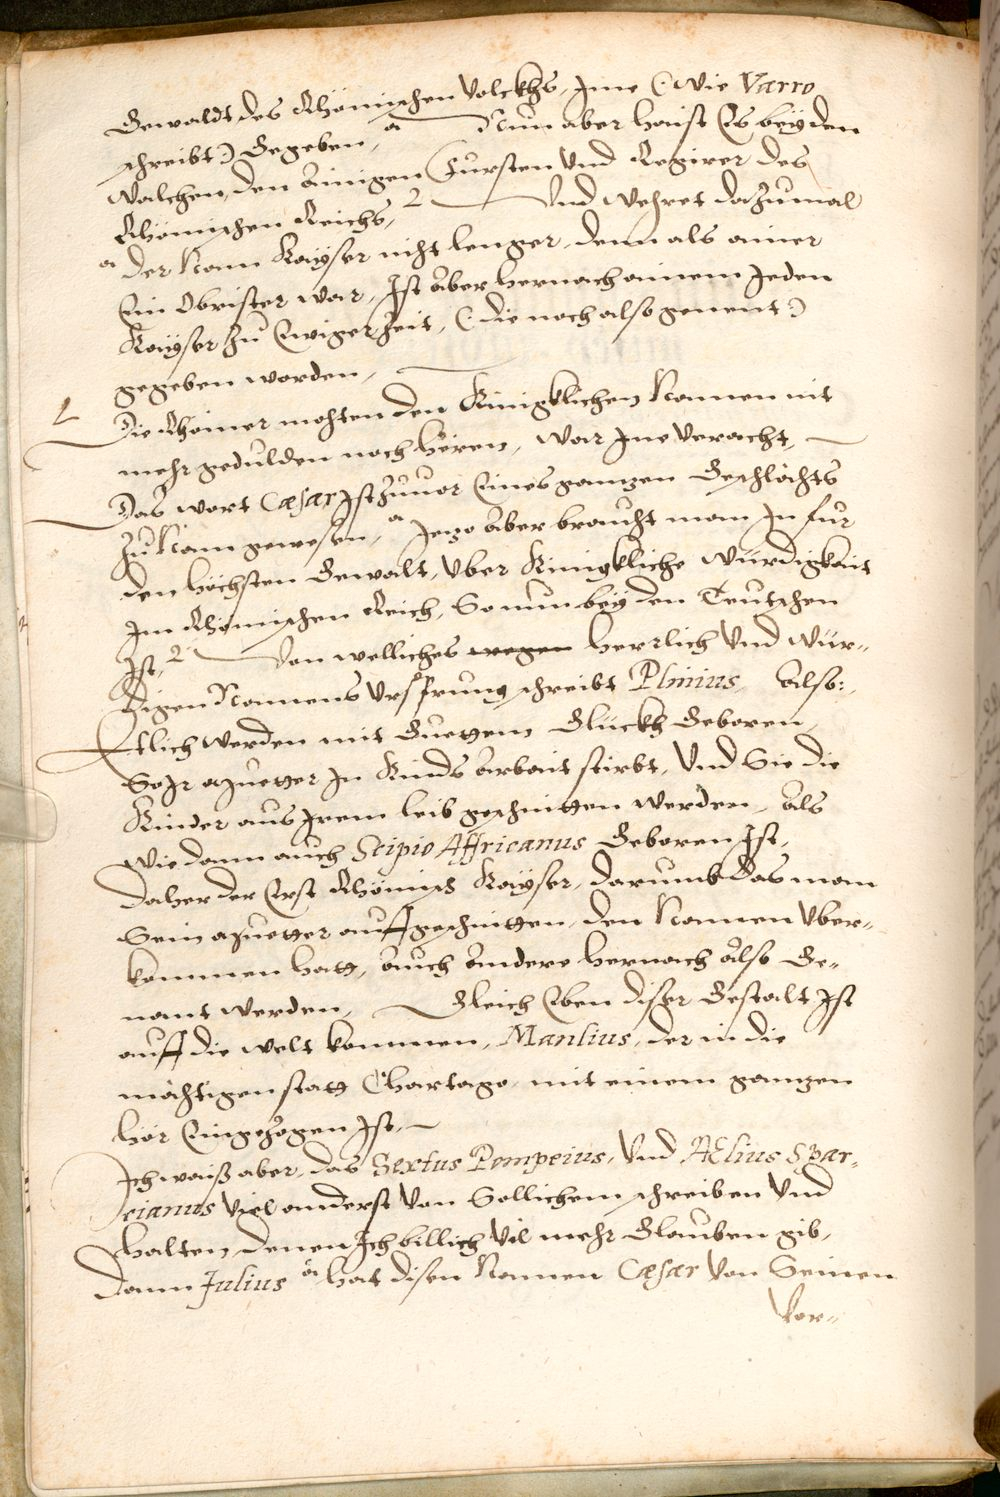 Gewaldt des Rhömischen Volckhs, Jme (: wie Varro
schreibt :) Gegeben, a Nun aber haist Es bey den
Walchen, den ainigen Fürsten Vnd Regirer des
Rhömischen Reichs, 2 Vnd wehret dazumal
a der Nam Kayser nicht lenger, dann als ainer
Ein Obrister war, Jst aber hernach ainem Jeden
Kayser zu Ewiger Zeit, (: die noch also genent :)
gegeben worden,
2 Die Rhömer mochten den Kinigklichen Namen nit
mehr gedulden noch hören, war Jne veracht,
Das wort Cæsar Jst zuuor Eines ganzen Geschlächts
Zu Nam gewesen, a Jezo aber braucht man Jn fur
den höchsten Gewalt, Vber Kinigkliche Würdigkait
Jm Rhömischen Reich, So nun bey den Teutschen
Jst, 2 Von welliches wegen herrlich Vnd Wür-
digen Namens Vrsprung schreibt Plinius, Also:
Etlich werden mit Guetem Glückh Geboren,
So Jr Mueter Jn Kinds arbait stirbt, Vnd Sie die
Kinder aus Jrem leib geschnitten werden, als
wie dann auch Scipio Affricanus Geboren Jst,
Daher der Erst Rhömisch Kayser, darumb das man
Sein Mueter auffgeschnitten, den Namen Vber-
kommen hatt, Auch Andere hernach also Ge-
nant werden, Gleich Eben diser Gestalt Jst
auff die welt kommen, Manlius, der in die
mächtigen statt Chartago mit einem ganzen
hör Eingezogen Jst,
Jch waiß aber, das Sextus Pompeius, Vnd Ælius Spar-
cianus Viel anderst Von Sollichem schreiben Vnd
halten, denen Jch billich Vil mehr Glauben gib,
dann Julius a hat disen Namen Cæsar Von Seinen
Vor-